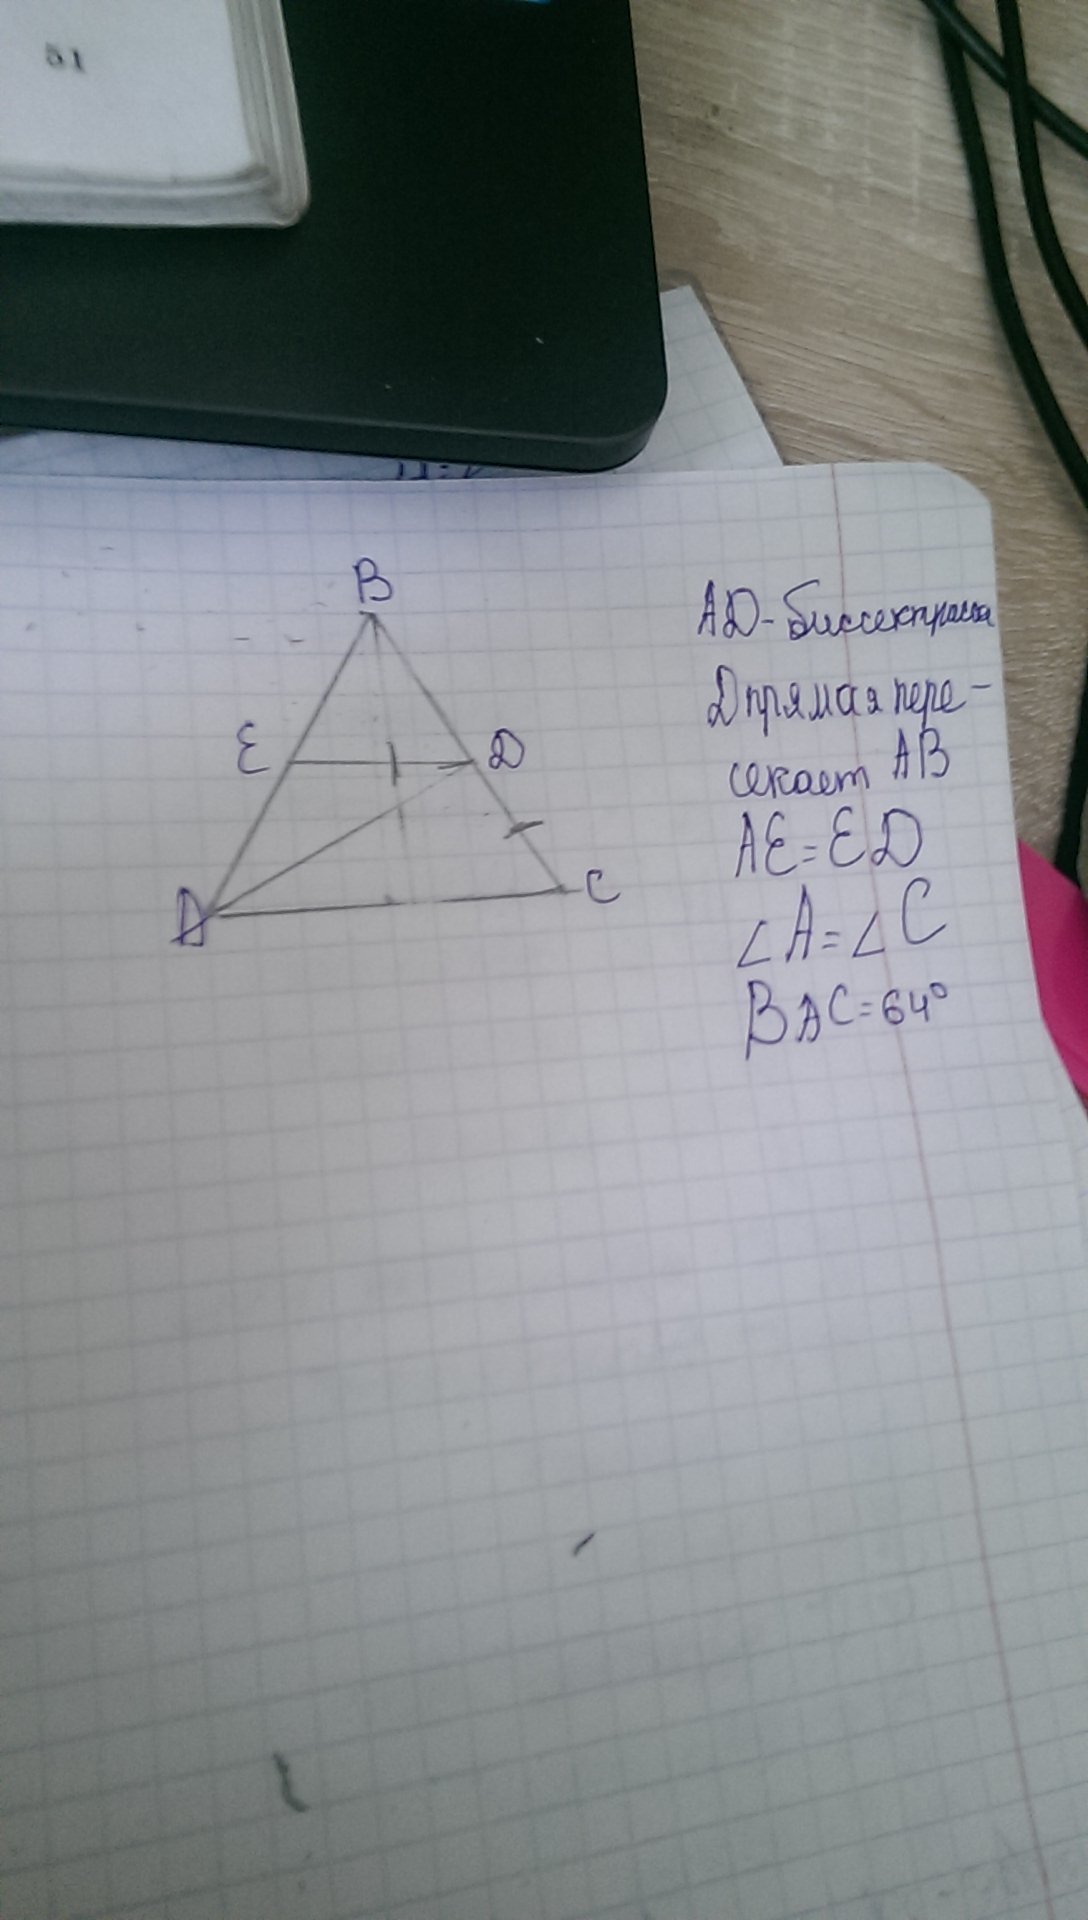 51
B
E
D
A
C
AD-биссектриса
D прямая пере-
секает AB
AE=ED
∠A=∠C
BAC=64°